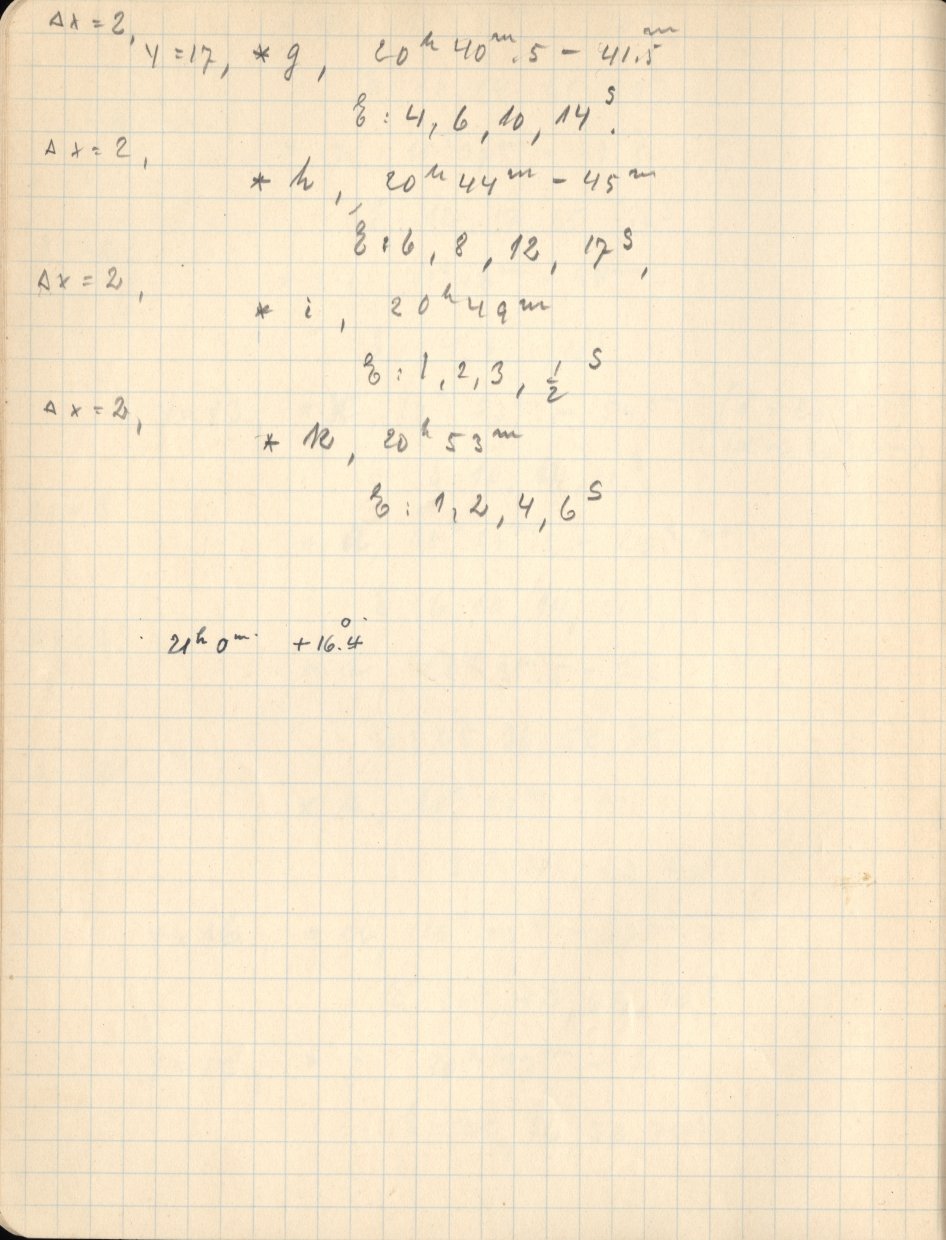 Δx = 2,
Y = 17, * g, 20ʰ 40ᵐ.5 – 41.5ᵐ
E : 4, 6, 10, 14ˢ.
Δx = 2,
* h, 20ʰ 44ᵐ – 45ᵐ
E : 6, 8, 12, 17ˢ,
Δx = 2,
* i, 20ʰ 49ᵐ
E : 1, 2, 3, ½ˢ
Δx = 2,
* k, 20ʰ 53ᵐ
E : 1, 2, 4, 6ˢ
21ʰ 0ᵐ. +16.°4